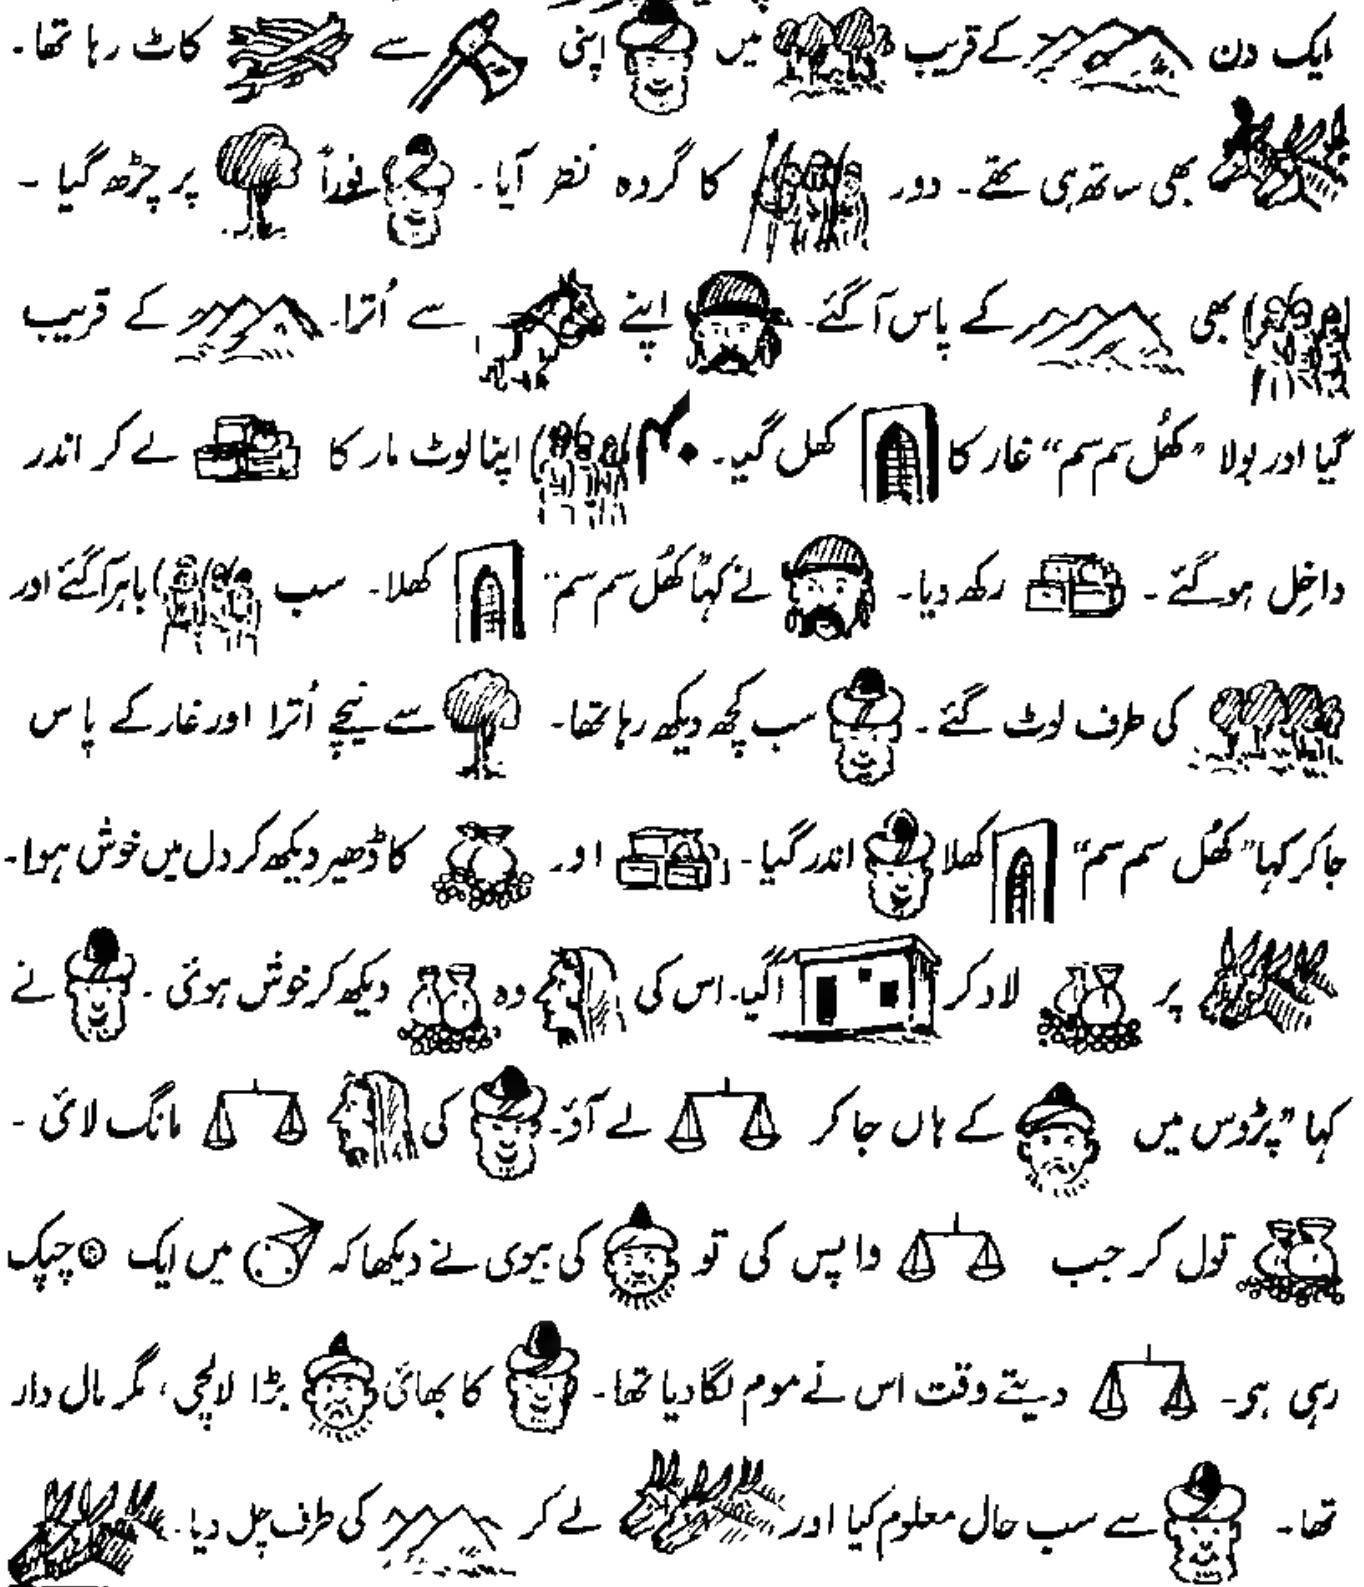 ایک دن کے قریب میں اپنی سے کاٹ رہا تھا۔
بھی ساتھ ہی تھے۔ دور کا گروہ نظر آیا۔ فوراً پر چڑھ گیا۔
بھی کے پاس آگئے۔ اپنے سے اُترا۔ کے قریب
گیا اور بولا "کھُل سم سم" غار کا کھل گیا۔ ۴۰ اپنا لوٹ مار کا لے کر اندر
داخِل ہوگئے۔ رکھ دیا۔ نے کہا "کھُل سم سم" کھلا۔ سب باہر آگئے اور
کی طرف لوٹ گئے۔ سب کچھ دیکھ رہا تھا۔ سے نیچے اُترا اور غار کے پاس
جا کر کہا "کھُل سم سم" کھلا اندر گیا۔ اور کا ڈھیر دیکھ کر دل میں خوش ہوا۔
پر لاد کر آگیا۔ اس کی وہ دیکھ کر خوش ہوئی۔ نے
کہا "پڑوس میں کے ہاں جا کر لے آؤ۔ کی مانگ لائی۔
تول کر جب واپس کی تو کی بیوی نے دیکھا کہ میں ایک چپک
رہی ہو۔ دیتے وقت اس نے موم لگا دیا تھا۔ کا بھائی بڑا لالچی، مگر مال دار
تھا۔ سے سب حال معلوم کیا اور لے کر کی طرف چل دیا۔